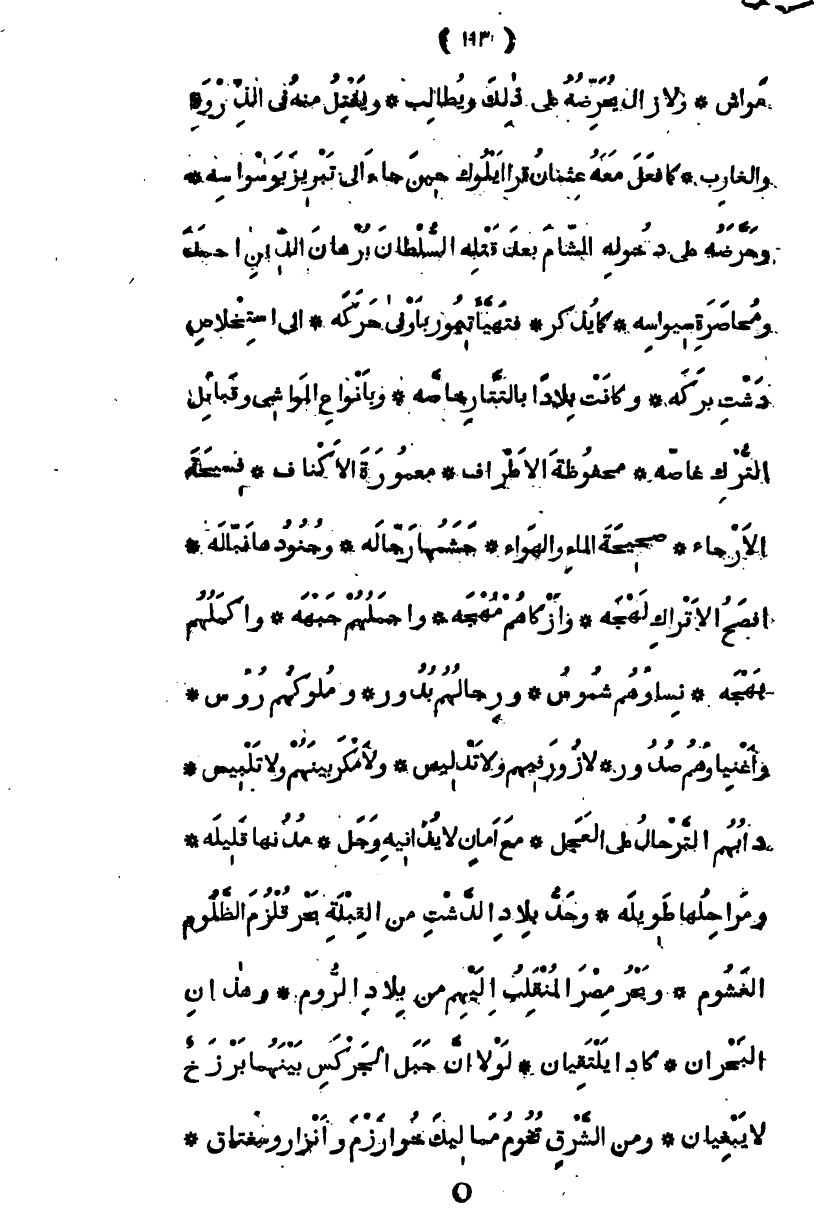 ( ١١٣ )
حَواش * ولا زال يُحَرِّضُهُ على ذٰلِكَ ويُطالِب * ويَفْتِلُ منهُ فى الذِّرْوَةِ
والغارِب * كما فَعَلَ مَعَهُ عِثمانُ قرا ايْلُوك حِينَ جاءَ الى تَبْرِيزَ بَوَسْواسِه *
وحَرَّضَهُ على دخُولِهِ الشّامَ بعدَ قَتْلِه السُّلْطانَ بُرْهانَ الدِّينِ احمدَ
ومُحاصَرَةِ سِيواسِه * كما يُذكر * فتهَيَّأَ تِيمُور بأوْفى حَرَكَه * الى استِخْلاصِ
دَشْتِ بركَه * وكانَتْ بِلادًا بالتَّتارِ خاصَّه * وبأنْواعِ المَواشِى وقَبائلِ
التُّرْكِ غاصّه * محفُوظةَ الاَطْراف * معمُورَةَ الاَكْناف * فسيحَةَ
الاَرْجاء * صحِيحَةَ الماءِ والهَواء * حَشَمُها رَجّالَه * وجُنُودُها نَبّالَه *
افصَحُ الاَتْراكِ لَهْجَه * وأزْكاهُمْ مُهْجَه * واجمَلُهُمْ جَبْهَه * واكمَلُهُم
بَهْجَه * نساؤُهُم شُمُوسٌ * ورِجالُهُم بُدُور * ومُلوكُهُم رُؤُس *
وأَغْنِياؤهُم صُدُور * لا زُورَ فيهِم ولا تَدْلِيس * ولا مَكْرَ بينَهُمْ ولا تَلْبِيس *
دَأبُهُم التَّرْحالُ على العَجَل * مَعَ اَمانٍ لا يُدانِيهِ وَجَل * مُدُنُها قَلِيلَه *
ومَراحِلُها طَوِيلَه * وحَدُّ بِلادِ الدَّشْتِ من القِبْلَةِ بَحْر قُلْزُمَ الظَّلُوم
الغَشُوم * وبَحْرُ مِصْرَ المُنْقَلِبُ اِلَيْهِم من بِلادِ الرُّوم * وهٰذانِ
البَحْران * كادا يَلْتَقِيان * لَوْلا انَّ جَبَل الجَرْكَسِ بَيْنَهُما بَرْزَخٌ
لا يَبْغِيان * ومن الشَّرْقِ تُخُومُ مَمالِيكَ خُوارَزْمَ وأنْزار وسغناق *